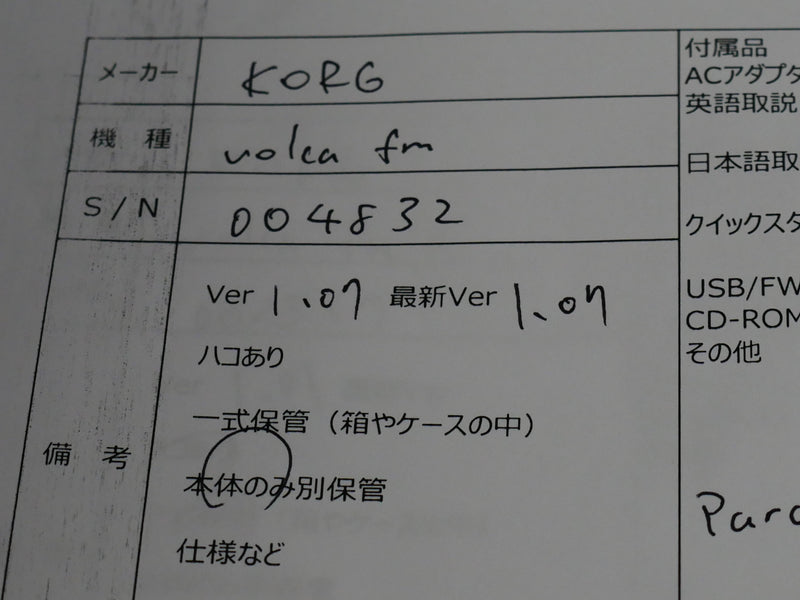 メーカー KORG
機 種 volca fm
S/N 004832
備 考
Ver 1.07 最新Ver 1.07
ハコあり
一式保管（箱やケースの中）
本体のみ別保管
仕様など
付属品
ACアダプタ
英語取説
日本語取
クイックスタ
USB/FW
CD-ROM
その他